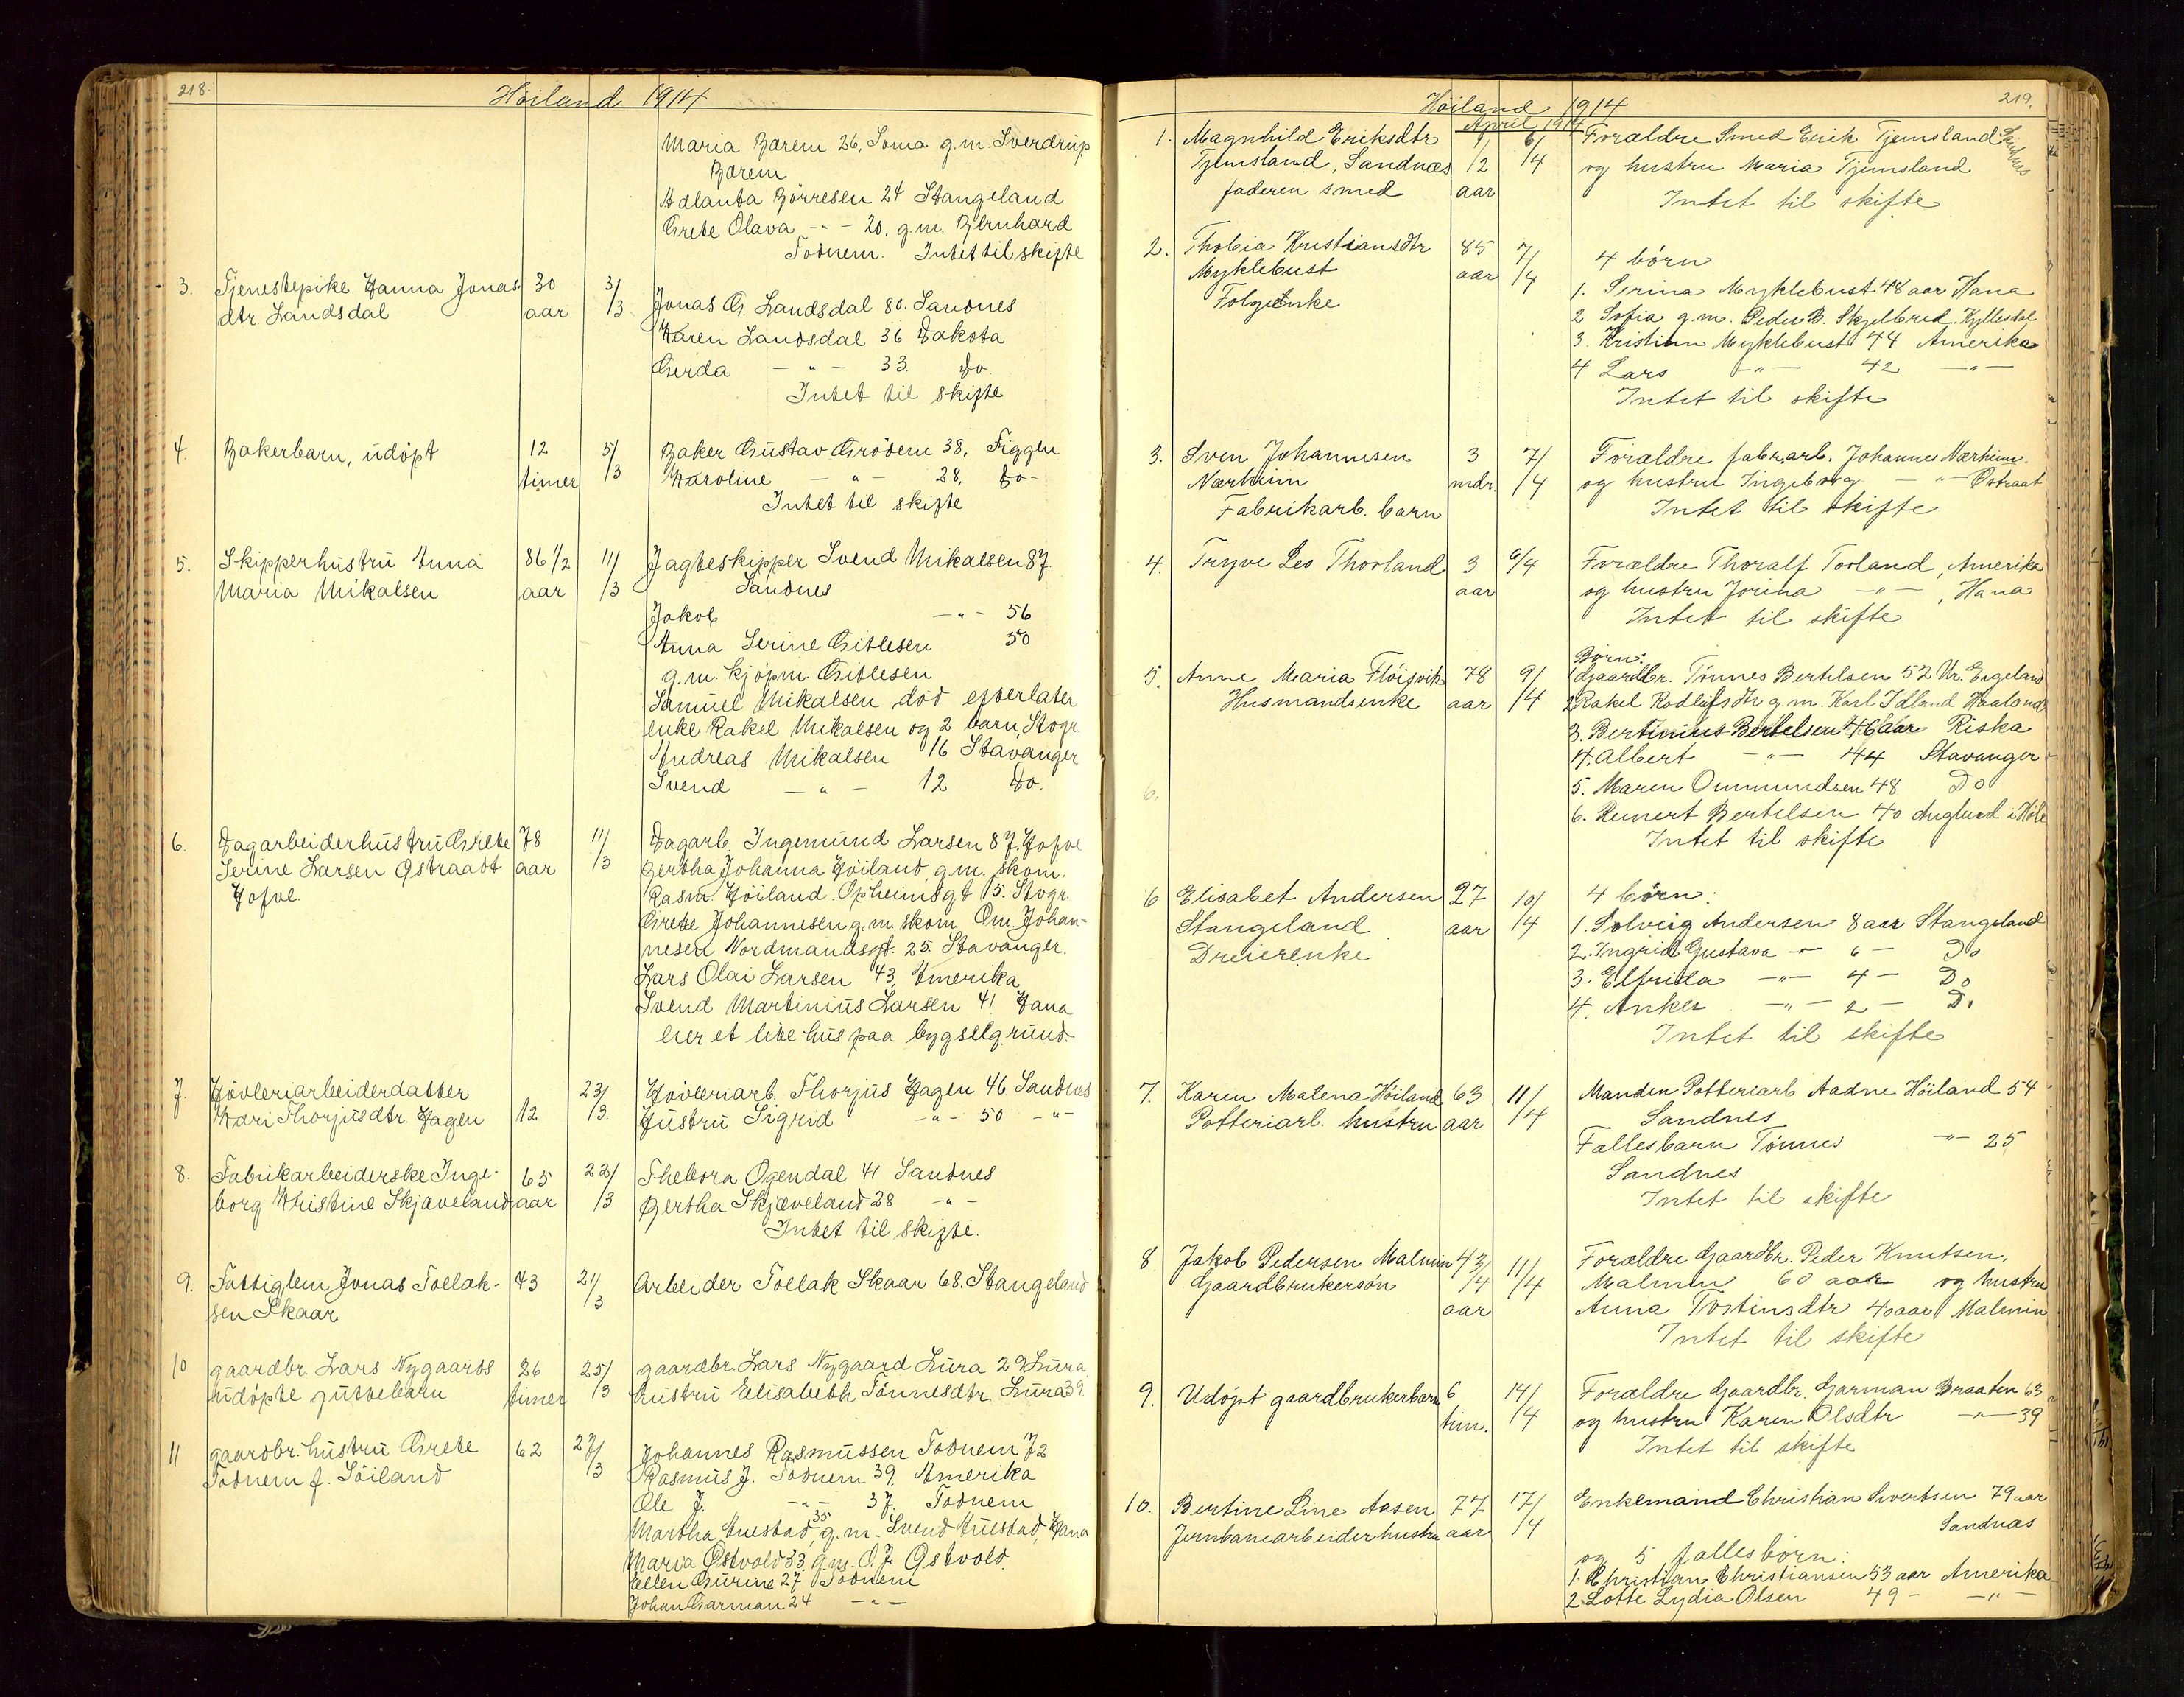 218.
Höiland 1914
Maria Bærem 26, Soma g.m. Sverdrup
Bærem
Adlanta Börresen 24 Stangeland
Grete Olava -"- 20, g.m. Bernhard
Todnem. Intet til skifte
3. Tjenestepike Hanna Jonas 30 3/3
dtr. Landsdal aar
Jonas G. Landsdal 80. Sandnes
Karen Landsdal 36 Dakota
Gerda -"- 33. do.
Intet til skifte
4. Bakerbarn, udöpt 12 5/3 Baker Gustav Grödem 38, Figgen
timer Karoline -"- 28, do-
Intet til skifte
5. Skipperhustru Anna 86 1/2 11/3 Jagteskipper Svend Mikalsen 87.
Maria Mikalsen aar Sandnes
Jakob -"- 56
Anna Serine Gitlesen 50
g.m. kjöpm. Gitlesen
Samuel Mikalsen död efterlater
enke Rakel Mikalsen og 2 barn, Stvgr.
Andreas Mikalsen 16 Stavanger
Svend -"- 12 do.
6. Dagarbeiderhustru Grete 78 11/3 Dagarb. Ingemund Larsen 87. Hofve
Serine Larsen Østraadt aar Bertha Johanna Höiland, g.m. skom.
Hofve. Rasm. Höiland. Opheimsgt 15. Stvgr.
Grete Johannesen g.m. skom. Om. Johan-
nesen Nordmandsgt. 25 Stavanger.
Lars Olai Larsen 43, Amerika
Svend Martinius Larsen 41 Hana
eier et lite hus paa bygselgrund.
7. Hövleriarbeiderdatter 23/3 Hövleriarb. Thorjus Hagen 46. Sandnes
Kari Thorjusdtr. Hagen 12 Hustru Sigrid -"- 50 -"-
8. Fabrikarbeiderske Inge- 65 22/3 Thebora Ogendal 41 Sandnes
borg Kristine Skjæveland aar Bertha Skjæveland 28 -"-
Intet til skifte.
9. Fattiglem Jonas Tollak- 43 21/3 Arbeider Tollak Skaar 68. Stangeland
sen Skaar
10 gaardbr. Lars Nygaards 26 25/3 gaardbr. Lars Nygaard Lura 29 Lura
udöpte guttebarn timer hustru Elisabeth Tönnesdtr. Lura 39.
11 gaardbr. hustru Grete 62 27/3 Johannes Rasmussen Todnem 72
Todnem f. Söiland Rasmus J. Todnem 39, Amerika
Ole J. -"- 37. Todnem
Martha Auestad, 35 g.m. Svend Auestad, Hana
Maria Östvold 33. g.m. O.J. Østvold.
Ellen Gurine 27 Todnem
Johan Garman 24 -"-
219.
Höiland 1914
April 1914
1. Magnhild Eriksdtr 1/2 6/4 Forældre Smed Erik Tjemsland Sandnes
Tjemsland, Sandnæs og hustru Maria Tjemsland
faderen smed aar Intet til skifte
2. Thobia Kristiansdtr 85 7/4 4 börn
Myklebust aar 1. Serina Myklebust 48 aar Hana
Folgeenke 2 Sofia g.m. Peder B. Skjelbred, Kyllesdal
3. Kristian Myklebust 44 Amerika
4 Lars -"- 42 -"-
Intet til skifte
3. Sven Johannesen 3 7/4 Forældre fabr.arb. Johannes Nærheim.
Nærheim mdr. og hustru Ingeborg -"- Østraat
Fabrikarb. barn Intet til skifte
4. Trygve Leo Thorland 3 6/4 Forældre Thoralf Torland, Amerika
aar og hustru Jorina -"-, Hana
Intet til skifte
Börn:
5. Anne Maria Flöisvik 78 9/4 1 Gaardbr. Tønnes Bertelsen 52 Vr. Eigeland
Husmandsenke aar 2 Rakel Rodlufsdtr g.m. Karl Idland Haaland
3. Bertinius Bertelsen 46 aar Riska
4. Albert -"- 44 Stavanger
5. Maren Ommundsen 48 Do
6. 6. Reinert Bertelsen 40 Auglend i Höle
Intet til skifte
6 Elisabet Andersen 27 10/4 4 börn:
Stangeland aar 1. Solveig Andersen 8 aar Stangeland
Dreierenke 2. Ingrid Gustava -"- 6 - Do
3. Elfrida -"- 4 - Do
4. Anker -"- 2 - Do
Intet til skifte
7. Karen Malena Höiland 63 11/4 Manden Potteriarb Aadne Höiland 54
Potteriarb. hustru aar Sandnes
Fallesbarn Tønnes -"- 25
Sandnes
Intet til skifte
8 Jakob Pedersen Malmin 4 3/4 11/4 Forældre Gaardbr. Peder Knutsen,
Gaardbrukersön aar Malmin 60 aar og hustru
Anna Tostinsdtr 40 aar Malmin
Intet til skifte
9. Udöpt gaardbrukerbarn 6 14/4 Forældre Gaardbr. Garman Braaten 63
tim. og hustru Karen Olsdtr -"- 39
Intet til skifte
10. Bertine Line Aasen 77 17/4 Enkemand Christian Sivertsen 79 aar
Jernbanearbeiderhustru aar Sandnæs
og 5 fallesbörn:
1. Christian Christiansen 53 aar Amerika
2. Lotte Lydia Olsen 49 - -"-